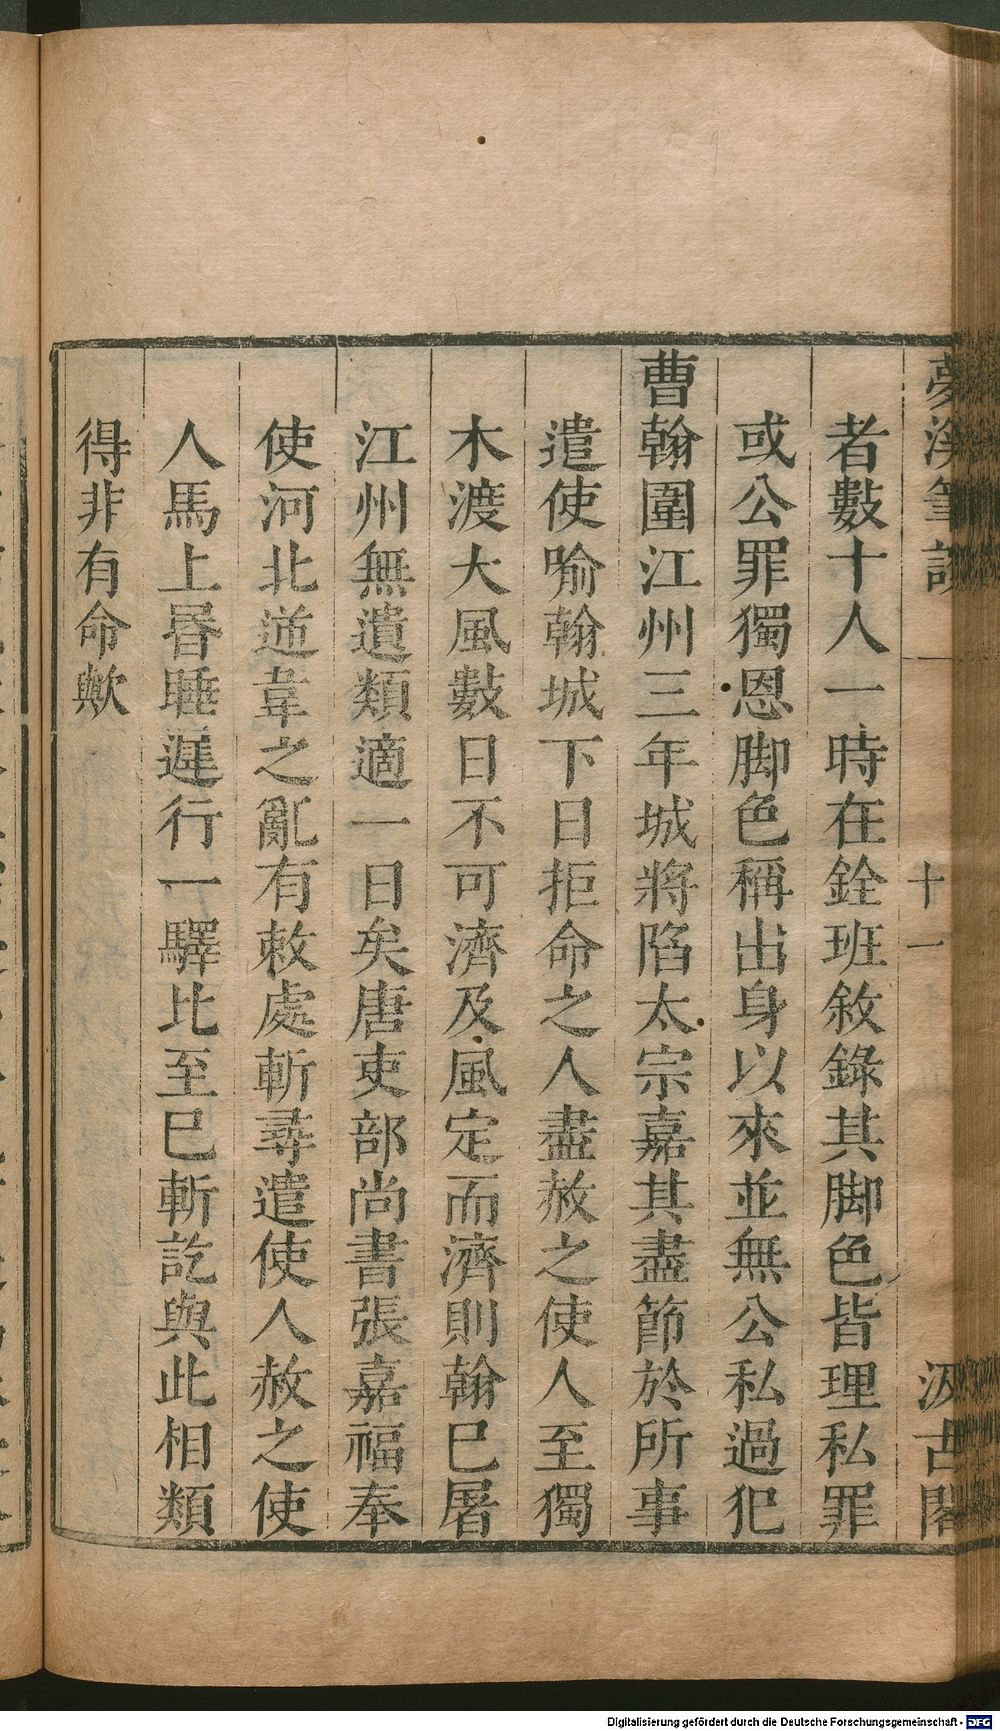 夢溪筆談 十一 汲古閣
者數十人一時在銓班敘錄其脚色皆理私罪
或公罪獨恩脚色稱出身以來並無公私過犯
曹翰圍江州三年城將陷太宗嘉其盡節於所事
遣使喻翰城下日拒命之人盡赦之使人至獨
木渡大風數日不可濟及風定而濟則翰已屠
江州無遺類適一日矣唐吏部尚書張嘉福奉
使河北逆韋之亂有敕處斬尋遣使人赦之使
人馬上昬睡遲行一驛比至已斬訖與此相類
得非有命歟
Digitalisierung gefördert durch die Deutsche Forschungsgemeinschaft - DFG